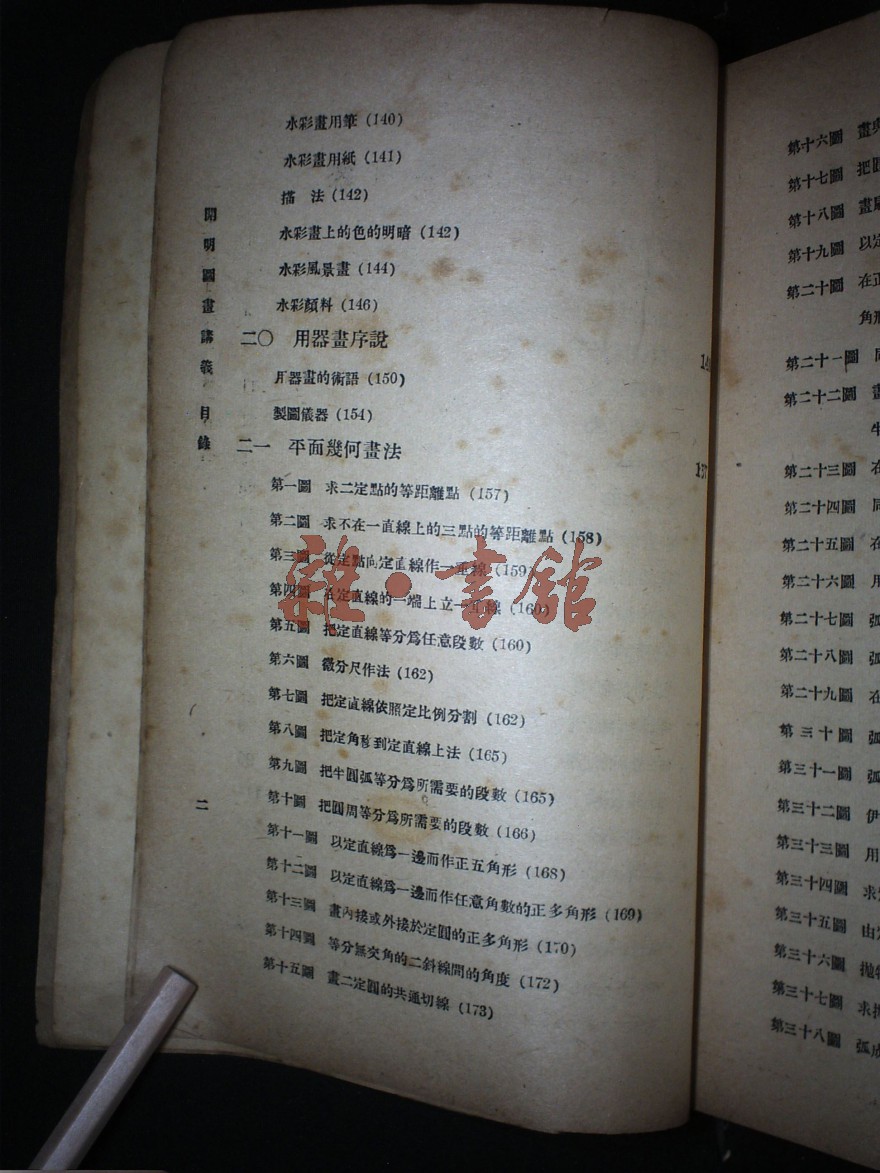 水彩畫用筆 (140)
水彩畫用紙 (141)
描 法 (142)
水彩畫上的色的明暗 (142)
水彩風景畫 (144)
水彩顏料 (146)
二〇 用器畫序說
用器畫的術語 (150)
製圖儀器 (154)
二一 平面幾何畫法
第一圖 求二定點的等距離點 (157)
第二圖 求不在一直線上的三點的等距離點 (158)
第三圖 從定點向定直線作一垂線 (159)
第四圖 在定直線的一端上立一垂線 (160)
第五圖 把定直線等分爲任意段數 (160)
第六圖 微分尺作法 (162)
第七圖 把定直線依照定比例分割 (162)
第八圖 把定角移到定直線上法 (165)
第九圖 把半圓弧等分爲所需要的段數 (165)
第十圖 把圓周等分爲所需要的段數 (166)
第十一圖 以定直線爲一邊而作正五角形 (168)
第十二圖 以定直線爲一邊而作任意角數的正多角形 (169)
第十三圖 畫內接或外接於定圓的正多角形 (170)
第十四圖 等分無交角的二斜線間的角度 (172)
第十五圖 畫二定圓的共通切線 (173)
開明圖畫講義 目錄
二
雜·書館
第十六圖 畫
第十七圖 把圓
第十八圖 畫
第十九圖 以定
第二十圖 在正
角形
第二十一圖 同
第二十二圖 畫
第二十三圖 在
第二十四圖 同
第二十五圖 在
第二十六圖 用
第二十七圖 弧
第二十八圖 弧
第二十九圖 在
第三十圖 弧
第三十一圖 弧
第三十二圖 伊
第三十三圖 用
第三十四圖 求
第三十五圖 由
第三十六圖 拋
第三十七圖 求
第三十八圖 弧成